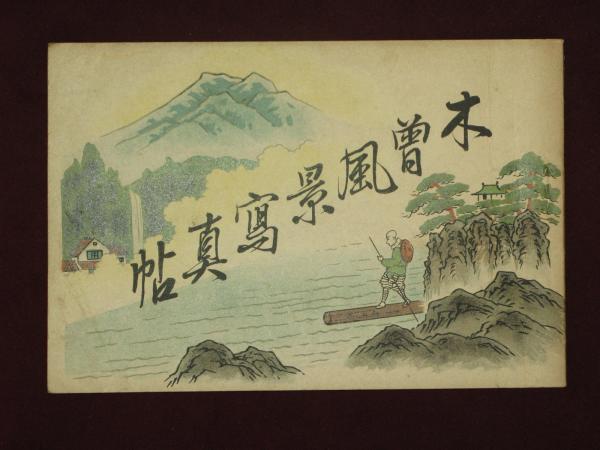 木曽風景寫真帖